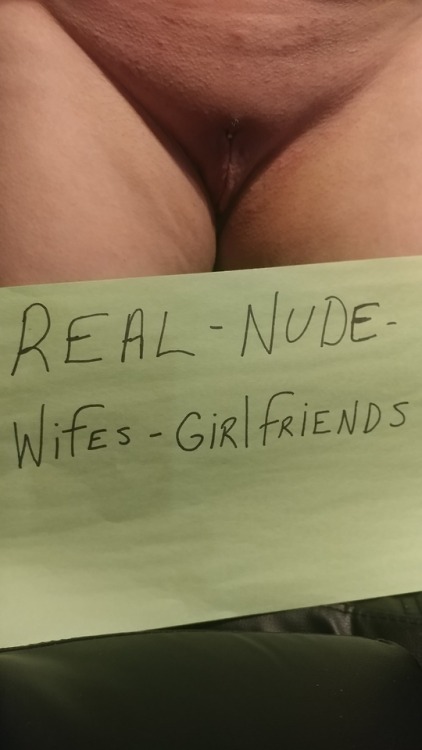 REAL-NUDE-
WIFES-GIRLFRIENDS